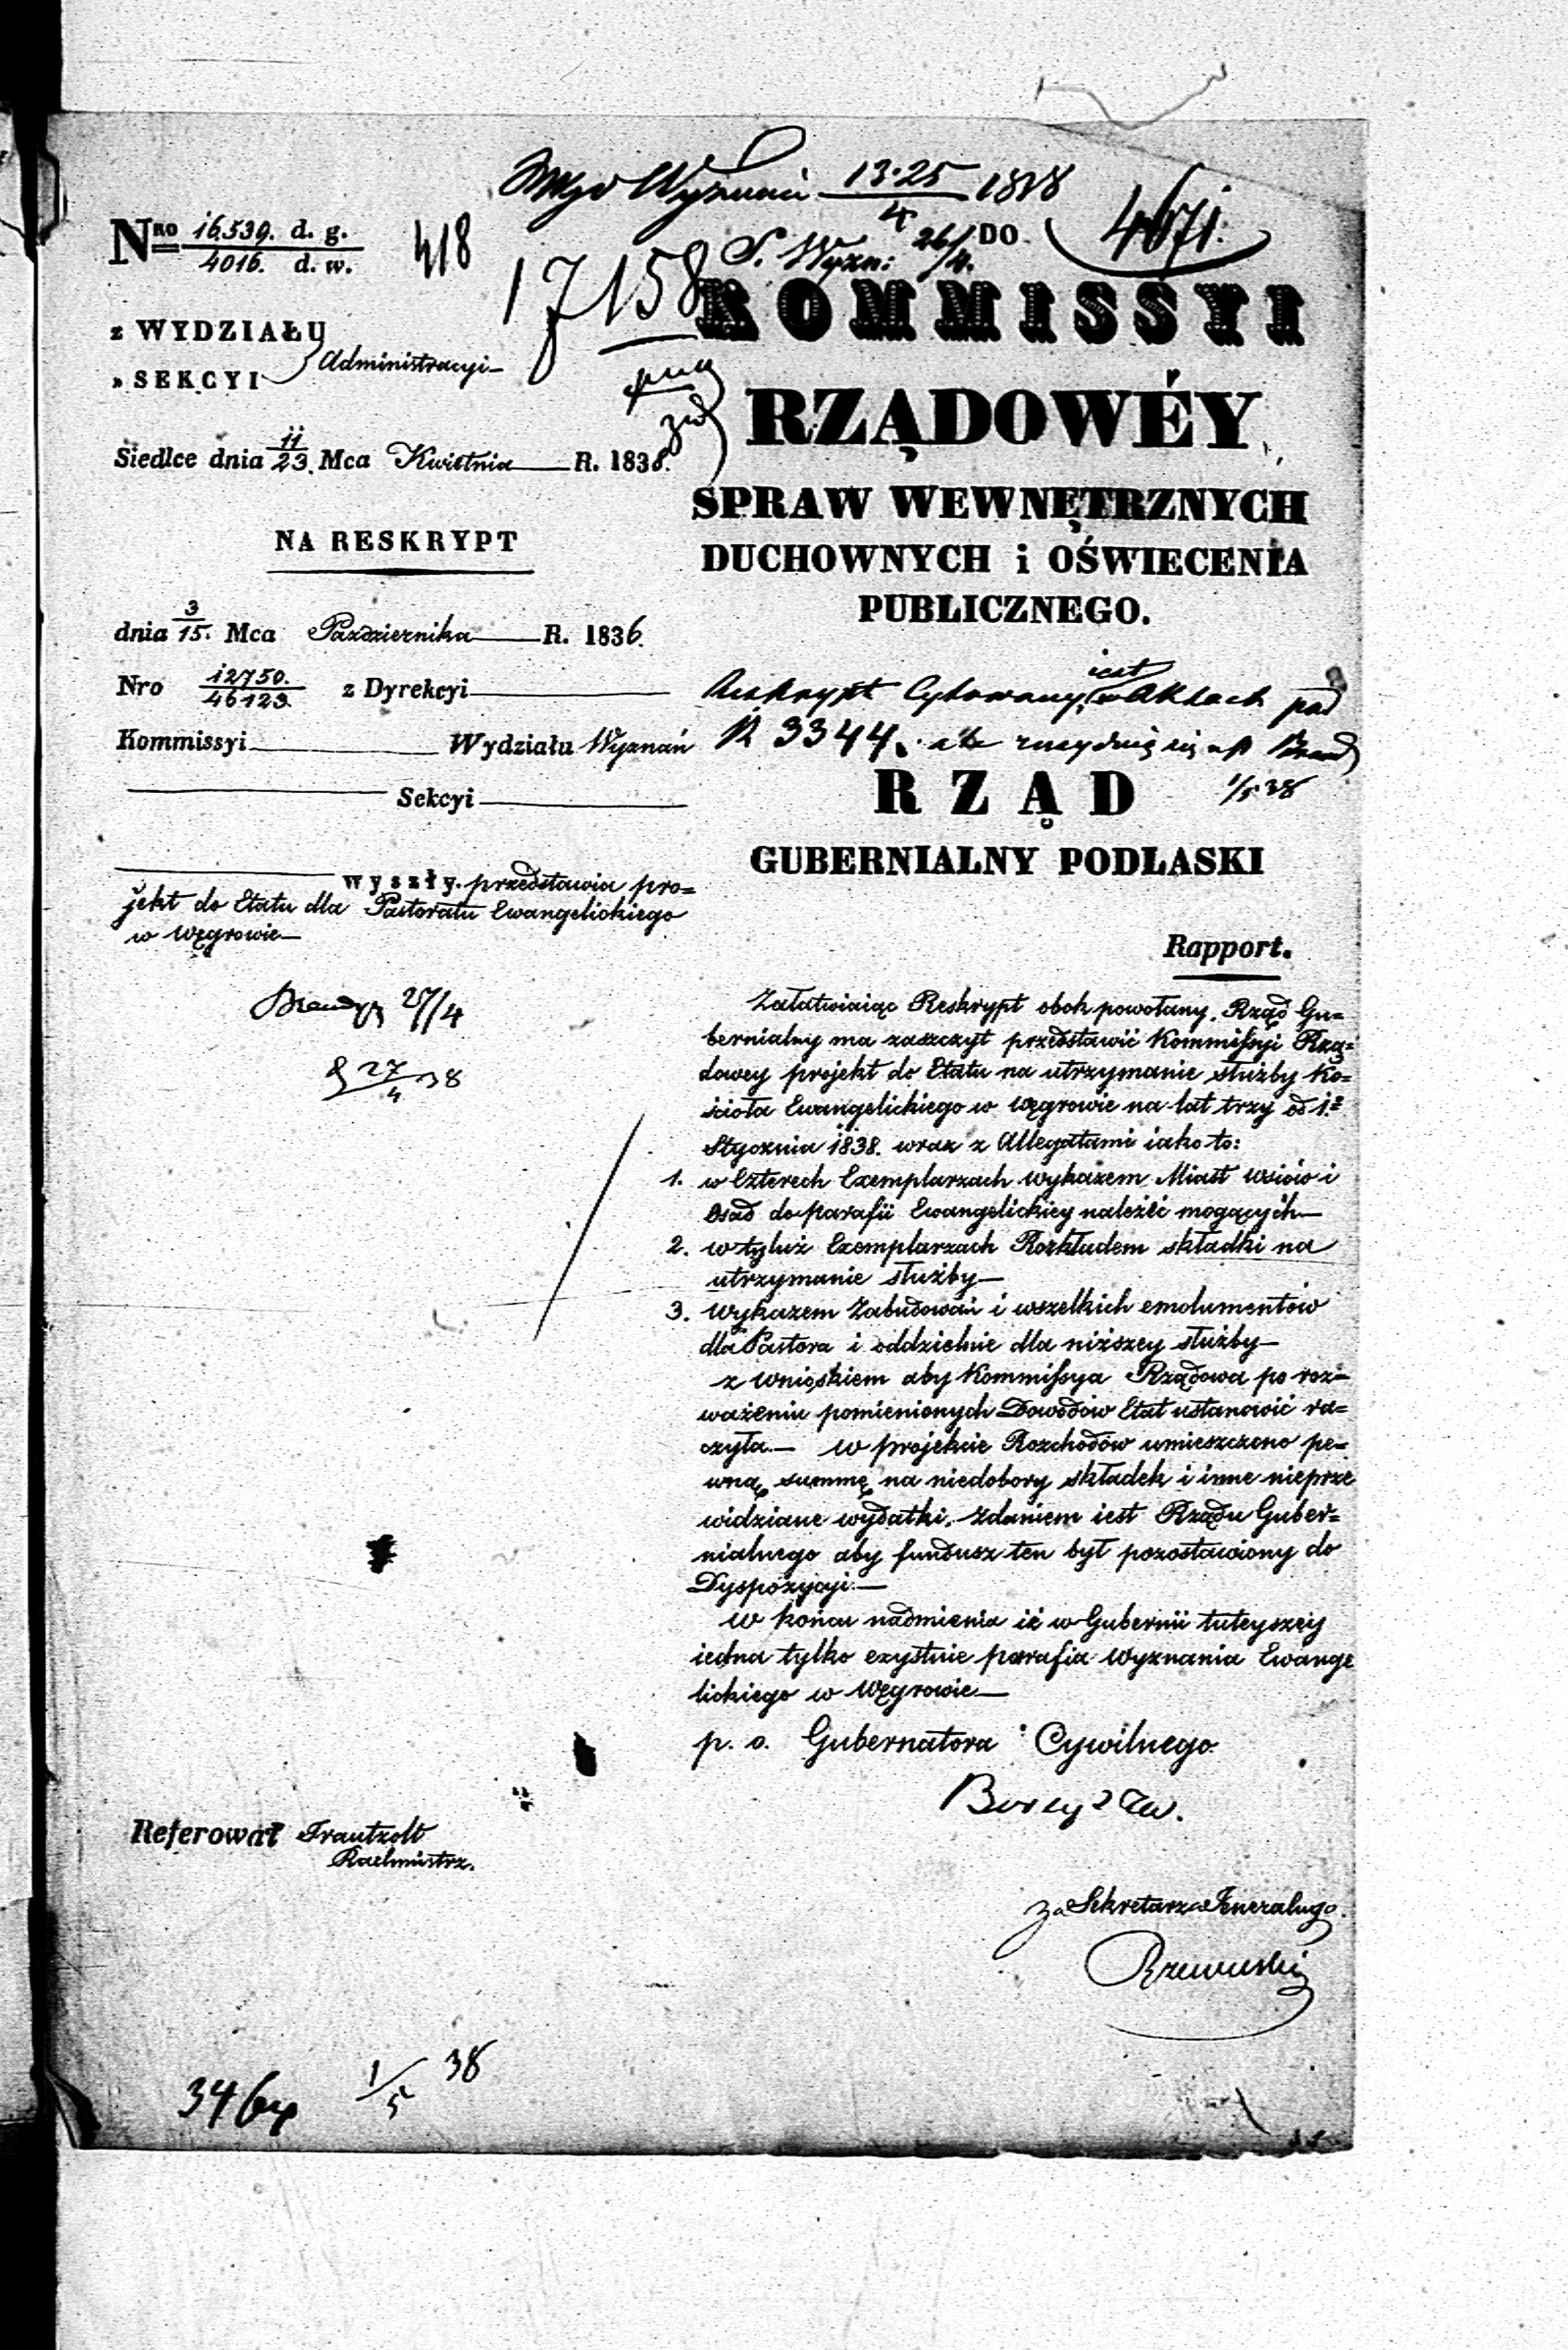 Wyznań 13·25/4 1838
Nro 16539. d. g. / 4016. d. w.
418
4671.
17158
S. Wyzn: 26/4.
DO
KOMMISSYI
RZĄDOWÉY
SPRAW WEWNĘTRZNYCH
DUCHOWNYCH i OŚWIECENIA
PUBLICZNEGO.
z WYDZIAŁU
» SEKCYI
Administracyi
Siedlce dnia 11/23. Mca Kwietnia R. 1838.
NA RESKRYPT
dnia 3/15. Mca Pazdziernika R. 1836.
Nro 12750./46123. z Dyrekcyi
Kommissyi Wydziału Wyznań
Sekcyi
wyszły. przedstawia pro=
jekt do Etatu dla Pastoratu Ewangelickiego
w Węgrowie
27/4
27/4 38
Reskrypt Cytowany, iest w Aktach pod
N 3344.
1/5 38
RZĄD
GUBERNIALNY PODLASKI
Rapport.
Załatwiaiąc Reskrypt obok powołany, Rząd Gu=
bernialny ma zaszczyt przedstawić Kommissyi Rzą=
dowey projekt do Etatu na utrzymanie służby Ko=
ścioła Ewangelickiego w Węgrowie na lat trzy od 1.
Stycznia 1838. wraz z Allegatami iako to:
1. w Czterech Exemplarzach wykazem Miast wsiów i
Osad do parafii Ewangelickiey należéć mogących
2. w tyluż Exemplarzach Rozkładem składki na
utrzymanie służby
3. wykazem Zabudowań i wszelkich emolumentów
dla Pastora i oddzielnie dla niższey służby
z wnioskiem aby Kommissya Rządowa po roz=
ważeniu pomienionych Dowodów Etat ustanowić ra=
czyła. w projekcie Rozchodów umieszczono pe=
wną summę na niedobory składek i inne nieprze
widziane wydatki. Zdaniem iest Rządu Guber=
nialnego aby fundusz ten był pozostawiony do
Dyspozycyi.
W końcu nadmienia iż w Gubernii tuteyszey
iedna tylko exystuie parafia wyznania Ewange
lickiego w Węgrowie
p. o. Gubernatora Cywilnego
Referował Trautzolt
Rachmistrz.
Za Sekretarza Jeneralnego.
Rzewuski
346
1/5 38